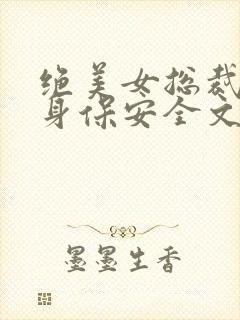 绝美女总裁
身保安全文
墨墨生香